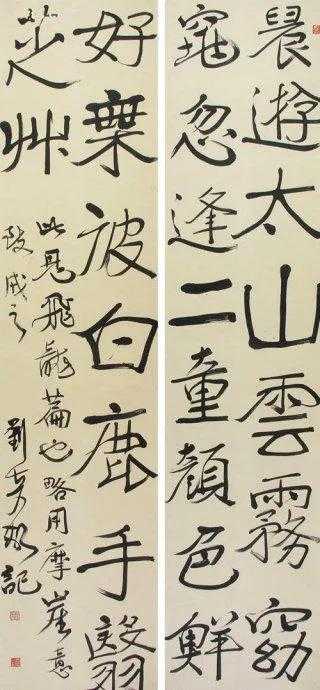 晨遊太山雲霧窈
窕忽逢二童顏色鮮
好乘彼白鹿手翳
芝艸
此見飛龍篇也略用摩崖意
成之
劉彥湖記